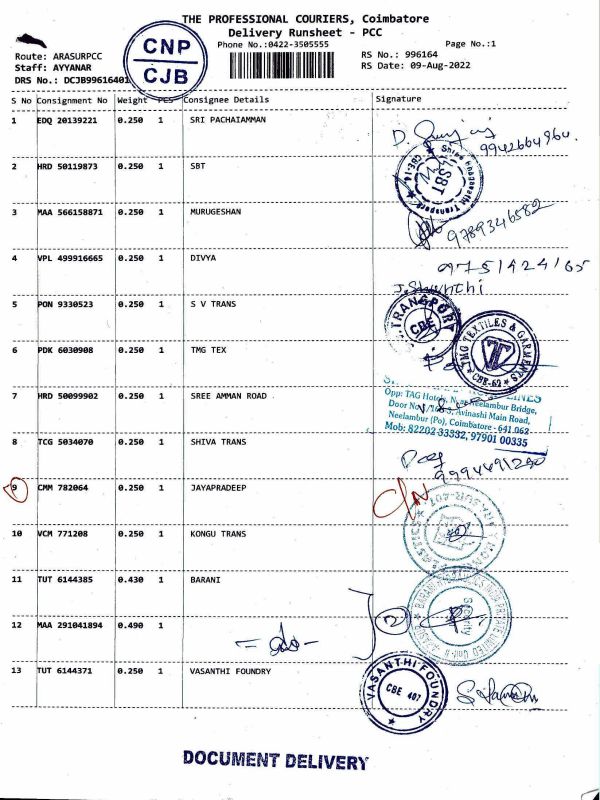 THE PROFESSIONAL COURIERS, Coimbatore
Delivery Runsheet - PCC
Phone No.:0422-3505555
Page No.:1
CNP
CJB
Route: ARASURPCC
Staff: AYYANAR
DRS No.: DCJB99616401
RS No.: 996164
RS Date: 09-Aug-2022
S No Consignment No Weight PCS Consignee Details Signature
1 EDQ 20139221 0.250 1 SRI PACHAIAMMAN
9942664964
2 HRD 50119873 0.250 1 SBT
SBT
3 MAA 566158871 0.250 1 MURUGESHAN
9789346582
4 VPL 499916665 0.250 1 DIVYA
9751424165
J. Shanthi
5 PON 9330523 0.250 1 S V TRANS
TRANSPORT
CBE
6 PDK 6030908 0.250 1 TMG TEX
TMG TEXTILES & GARMENTS
CBE-62
7 HRD 50099902 0.250 1 SREE AMMAN ROAD
LINES
Opp: TAG Hotels, Near Neelambur Bridge,
Avinashi Main Road,
Neelambur (Po), Coimbatore - 641 062
Mob: 82202 33332, 97901 00335
8 TCG 5034070 0.250 1 SHIVA TRANS
9 CMM 782064 0.250 1 JAYAPRADEEP
10 VCM 771208 0.250 1 KONGU TRANS
11 TUT 6144385 0.430 1 BARANI
Security
12 MAA 291041894 0.490 1
2
- do -
13 TUT 6144371 0.250 1 VASANTHI FOUNDRY
VASANTHI FOUNDRY
CBE 407
DOCUMENT DELIVERY